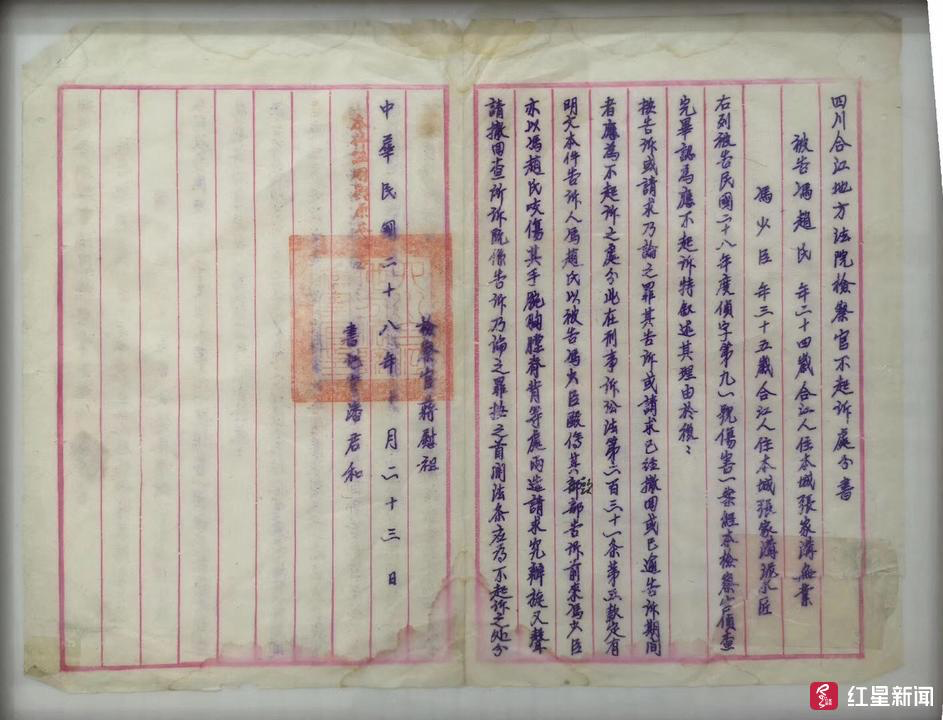 四川合江地方法院檢察官不起訴處分書
被告馮趙氏 年二十四歲合江人住本城張家溝無業
馮少臣 年三十五歲合江人住本城張家溝泥水匠
右列被告民國二十八年度偵字第九一號傷害一案經本檢察官偵查
完畢認為應不起訴特敘述其理由於後：
按告訴或請求乃論之罪其告訴或請求已經撤回或已逾告訴期間
者應為不起訴之處分此在刑事訴訟法第二百三十一條第五款定有
明文本件告訴人馮趙氏以被告馮少臣毆傷其部告訴前來馮少臣
亦以馮趙氏咬傷其手腕胸膛脊背等處兩造請求究辦旋又聲
請撤回查所訴既係告訴乃論之罪按之首開法条应為不起訴之处分
檢察官蔣慰祖
中華民國二十八年 月二十三日
書記官潘君和
本件證明與原本
红星新闻